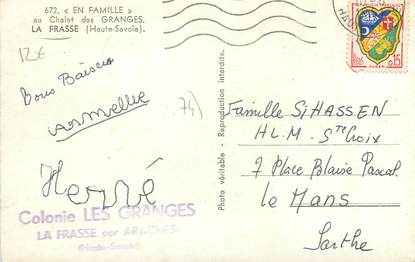 672. « EN FAMILLE »
au Chalet des GRANGES.
LA FRASSE (Haute-Savoie).
12€
Bons Baisers
Armelle
74)
Hervé
Colonie LES GRANGES
LA FRASSE par ARACHES
(Haute-Savoie)
Photo véritable - Reproduction interdite.
ALGER
0,15
Famille SiHASSEN
H.L.M. Ste Croix
7 Place Blaise Pascal
Le Mans
Sarthe